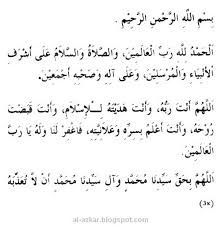 بِسْمِ اللهِ الرَّحْمٰنِ الرَّحِيْمِ .
اَلْحَمْدُ لِلّٰهِ رَبِّ الْعَالَمِيْنَ، وَالصَّلَاةُ وَالسَّلَامُ عَلَى أَشْرَفِ
الْأَنْبِيَاءِ وَالْمُرْسَلِيْنَ، وَعَلَى آلِهِ وَصَحْبِهِ أَجْمَعِيْنَ .
اَللّٰهُمَّ أَنْتَ رَبُّهُ، وَأَنْتَ هَدَيْتَهُ لِلْإِسْلَامِ، وَأَنْتَ قَبَضْتَ
رُوْحَهُ، وَأَنْتَ أَعْلَمُ بِسِرِّهِ وَعَلَانِيَتِهِ، فَاغْفِرْ لَنَا وَلَهُ يَا رَبَّ
الْعَالَمِيْنَ.
اَللّٰهُمَّ بِحَقِّ سَيِّدِنَا مُحَمَّدٍ وَآلِ سَيِّدِنَا مُحَمَّدٍ أَنْ لَا تُعَذِّبَهُ
(3x)
al-azkar.blogspot.com